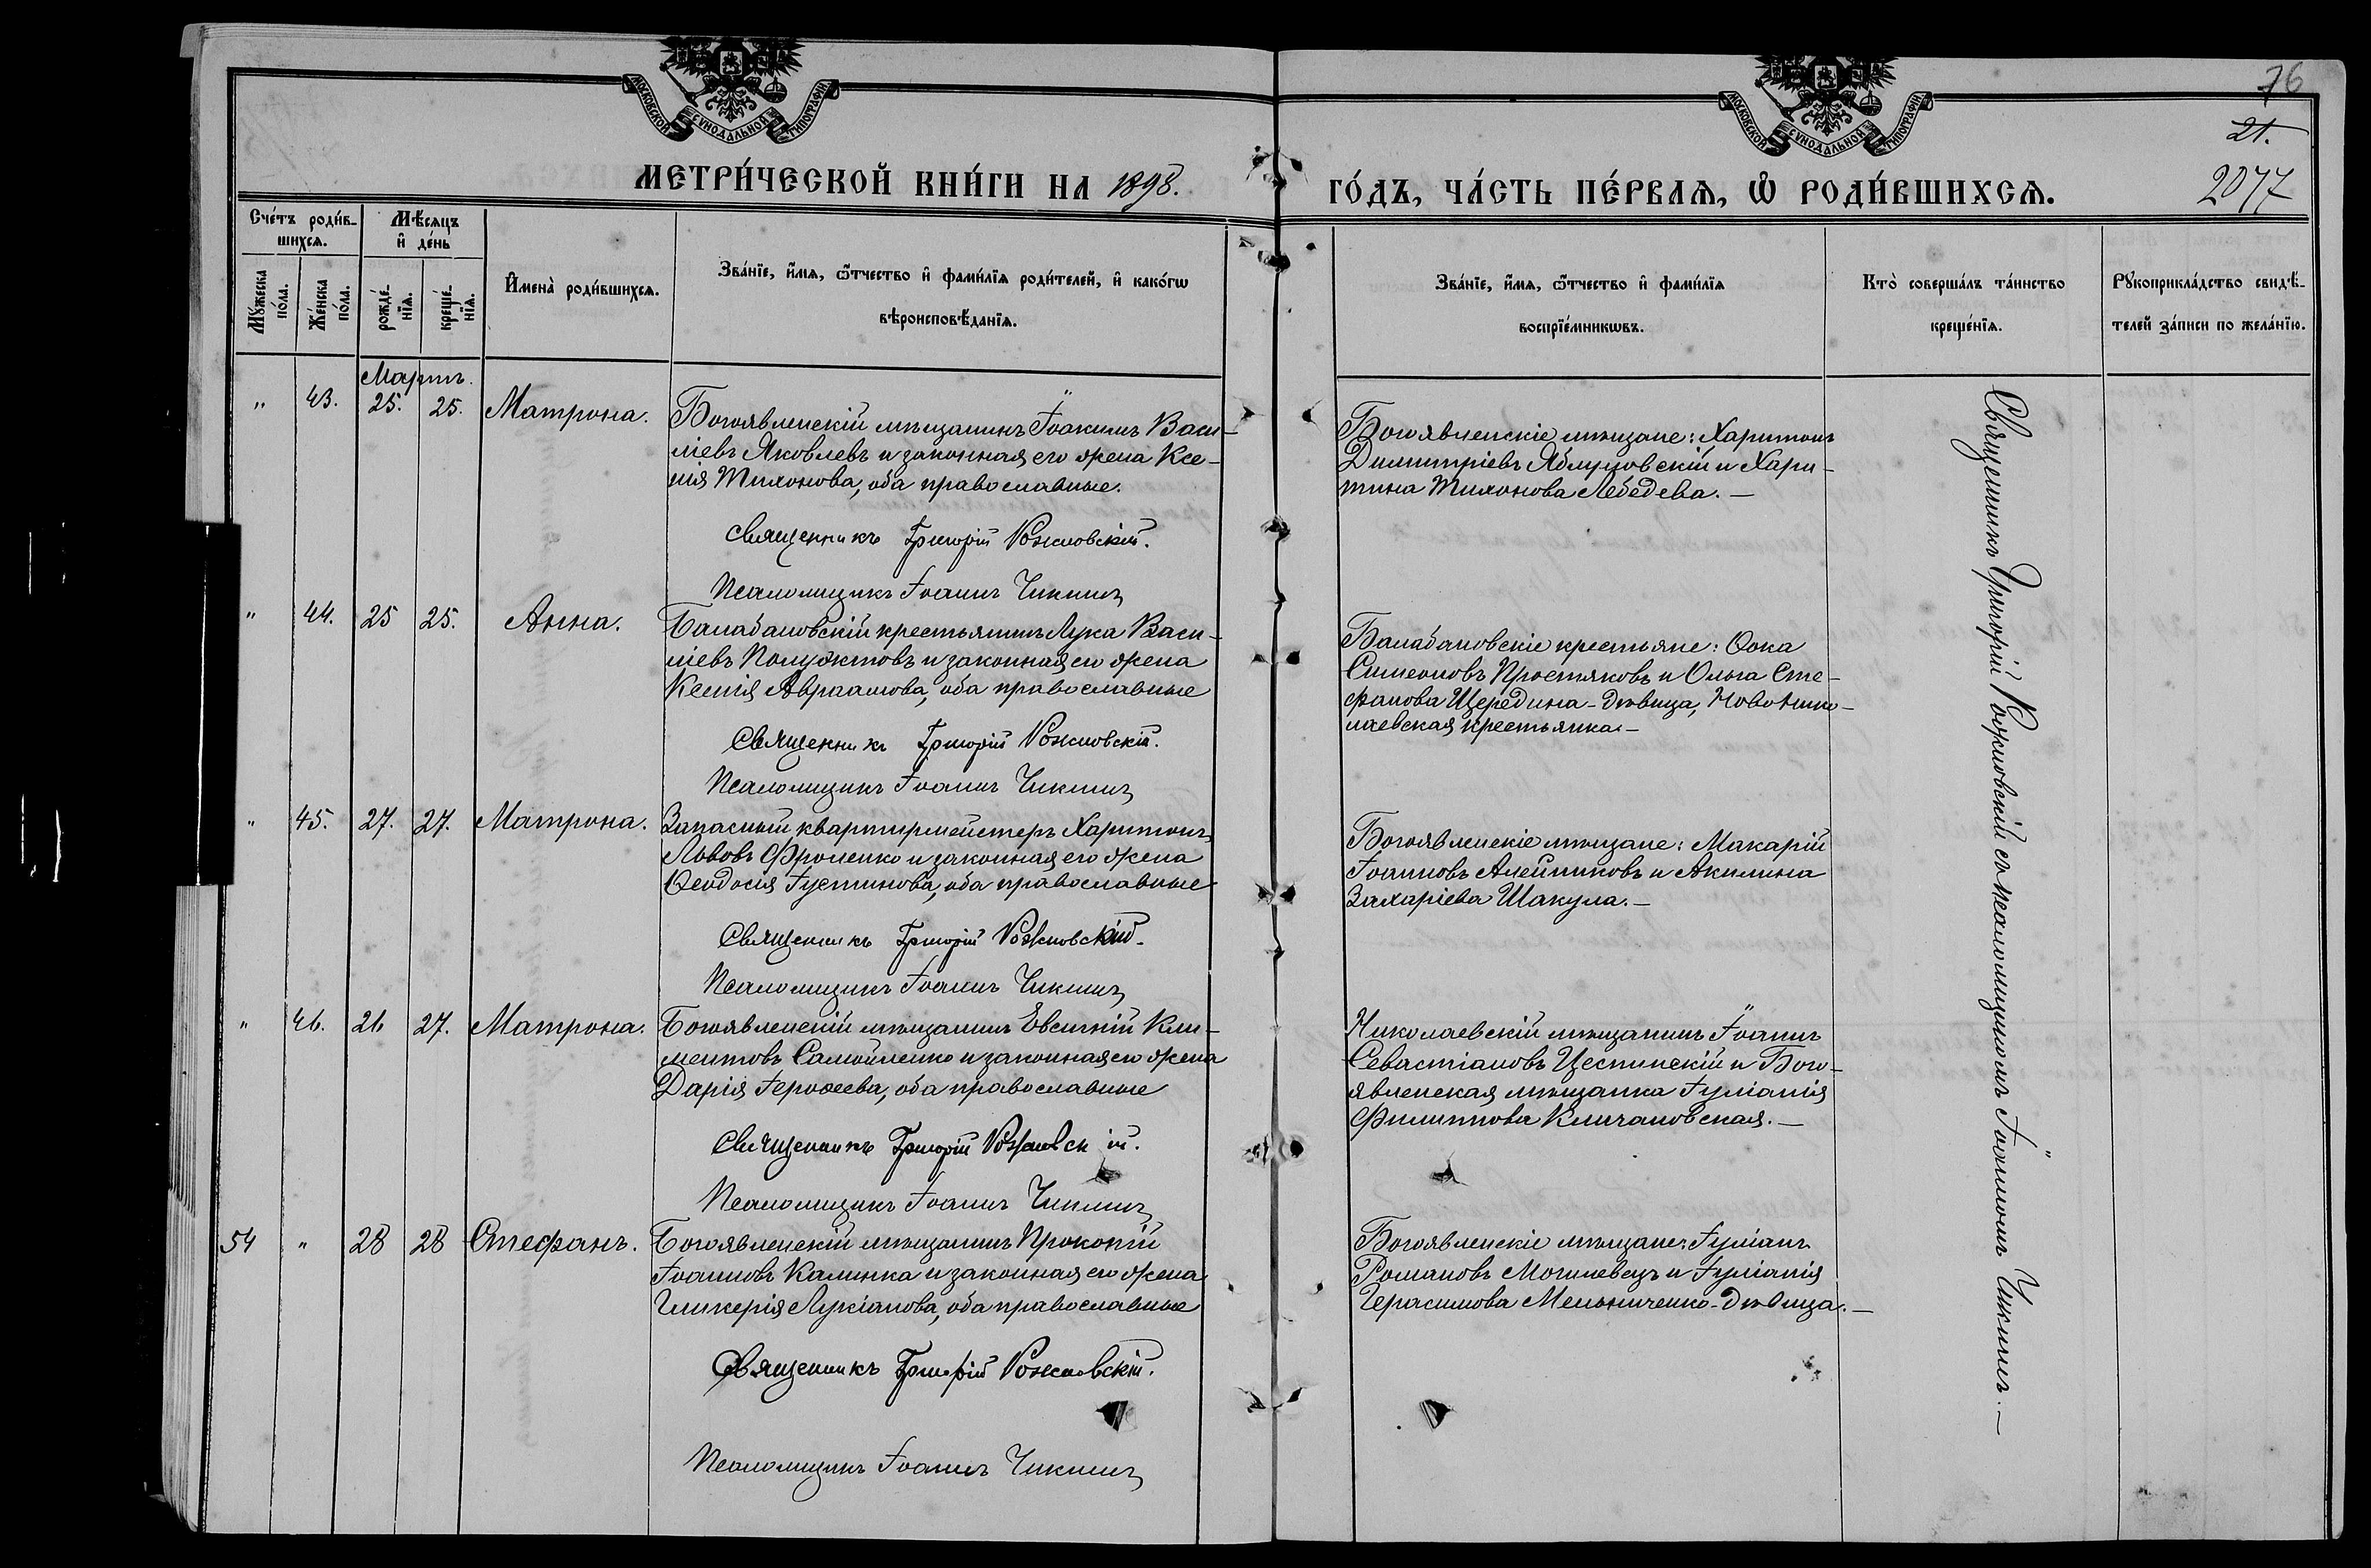 МОСКОВСКОЙ СѴНОДАЛЬНОЙ ТИПОГРАФІИ
МОСКОВСКОЙ СѴНОДАЛЬНОЙ ТИПОГРАФІИ
76
21.
2077
МЕТРИ́ЧЕСКОЙ КНИ́ГИ НА 1898.
ГО́ДЪ, ЧА́СТЬ ПЕ́РВАЯ, Ѿ РОДИ́ВШИХСЯ.
Сче́тъ роди́в-
шихся.
Мѣсяцъ
и де́нь
Му́жеска по́ла.
Же́нска по́ла.
рожде́-
нїя.
креще́-
нїя.
Имена̀ роди́вшихся.
Зва́нїе, и́мя, ѻ́тчество и фами́лїя роди́телей, и како́гѡ
вѣроисповѣ́данїя.
Зва́нїе, и́мя, ѻ́тчество и фами́лїя
воспрїе́мникѡвъ.
Кто̀ соверша́лъ та́инство
креще́нїя.
Рукоприкла́дство свидѣ́-
телей за́писи по жела́нїю.
Мартъ.
" 43. 25. 25. Матрона.
Богоявленскій мѣщанинъ Іоакимъ Васи-
ліевъ Яковлевъ и законная его жена Ксе-
нія Тихонова, оба православные.
Священникъ Григорій Рожновскій.
Псаломщикъ Іоаннъ Чикинъ
Богоявленскіе мѣщане: Харитонъ
Димитріевъ Яблуновскій и Хари-
тина Тихонова Лебедева.—
" 44. 25 25. Анна.
Балабановскій крестьянинъ Лука Васи-
ліевъ Полуэктовъ и законная его жена
Ксенія Авраамова, оба православные
Священникъ Григорій Рожновскій.
Псаломщикъ Іоаннъ Чикинъ
Балабановскіе крестьяне: Ѳока
Симеоновъ Простяковъ и Ольга Сте-
фанова Щередина-дѣвица, Новонико-
лаевская крестьянка.—
" 45. 27. 27. Матрона.
Запасный квартирмейстеръ Харитонъ
Львовъ Фроленко и законная его жена
Ѳеодосія Іустинова, оба православные
Священникъ Григорій Рожновскій.
Псаломщикъ Іоаннъ Чикинъ
Богоявленскіе мѣщане: Макарій
Іоанновъ Алейниковъ и Акилина
Захаріева Шакула.—
" 46. 26 27. Матрона.
Богоявленскій мѣщанинъ Евсигній Кли-
ментовъ Самойленко и законная его жена
Дарія Іероѳеева, оба православные
Священникъ Григорій Рожновскій.
Псаломщикъ Іоаннъ Чикинъ
Николаевскій мѣщанинъ Іоаннъ
Севастіановъ Цеспинскій и Бого-
явленская мѣщанка Іуліанія
Филиппова Кличановская.—
54 " 28 28 Стефанъ.
Богоявленскій мѣщанинъ Прокопій
Іоанновъ Калинка и законная его жена
Гликерія Лукіанова, оба православные
Священникъ Григорій Рожновскій.
Псаломщикъ Іоаннъ Чикинъ
Богоявленскіе мѣщане: Іуліанъ
Романовъ Могилевецъ и Іуліанія
Герасимова Мельниченко-дѣвица.—
Священникъ Григорій Рожновскій съ псаломщикомъ Іоанномъ Чикинъ.—